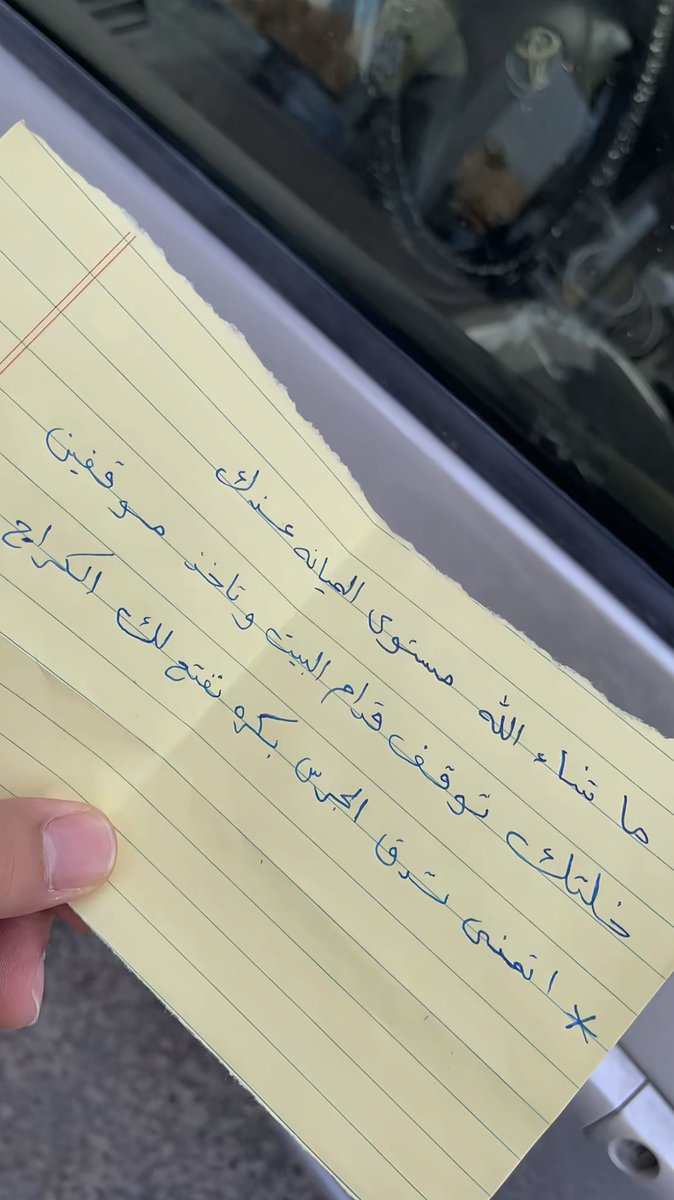 ما شاء الله مستوى الميانه عندك
خلتك توقف قدام البيت وتاخذ موقفين
* اتمنى تدق الجرس بكره نفتح لك الكراج